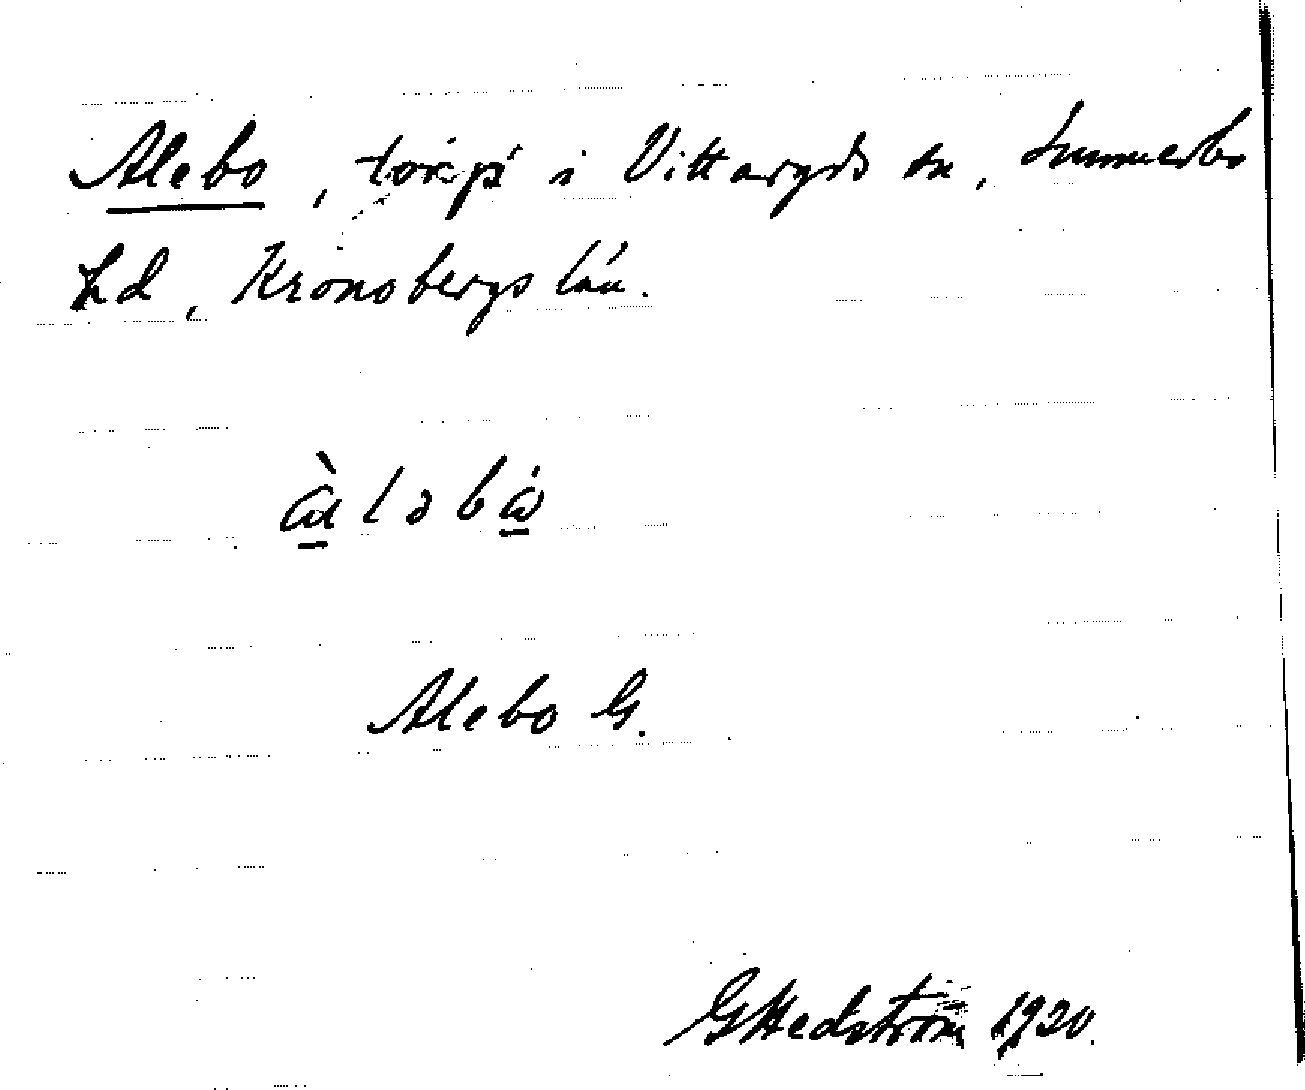 Alebo, torp i Vittaryds sn, Sunnerbo
hd, Kronobergs län.
Alebo G.
GHedström 1920.